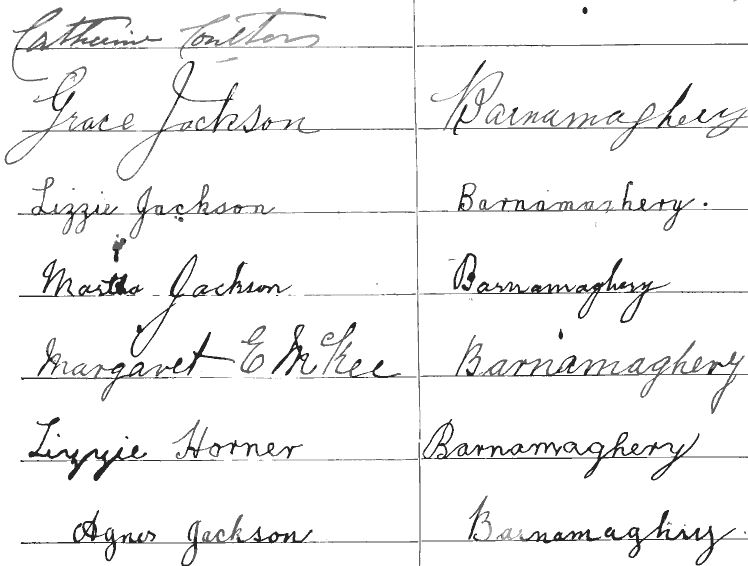 Catherine Coulters
Grace Jackson Barnamaghery
Lizzie Jackson Barnamaghery.
Martha Jackson Barnamaghery
Margaret E McKee Barnamaghery
Lizzie Horner Barnamaghery
Agnes Jackson Barnamaghery.